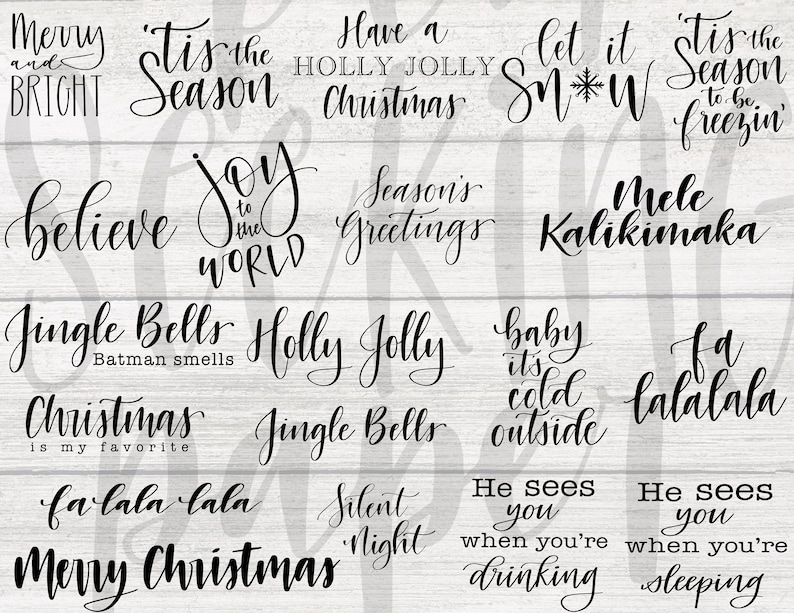 Merry
and
BRIGHT
'tis the
Season
Have a
HOLLY JOLLY
Christmas
let it
Snow
'tis the
Season
to be
freezin'
believe
joy
to
the
WORLD
Season's
Greetings
Mele
Kalikimaka
Jingle Bells
Batman smells
Holly Jolly
baby
it's
cold
outside
fa
lalalala
Christmas
is my favorite
Jingle Bells
fa lala lala
Merry Christmas
Silent
Night
He sees
you
when you're
drinking
He sees
you
when you're
sleeping
seeking
paper